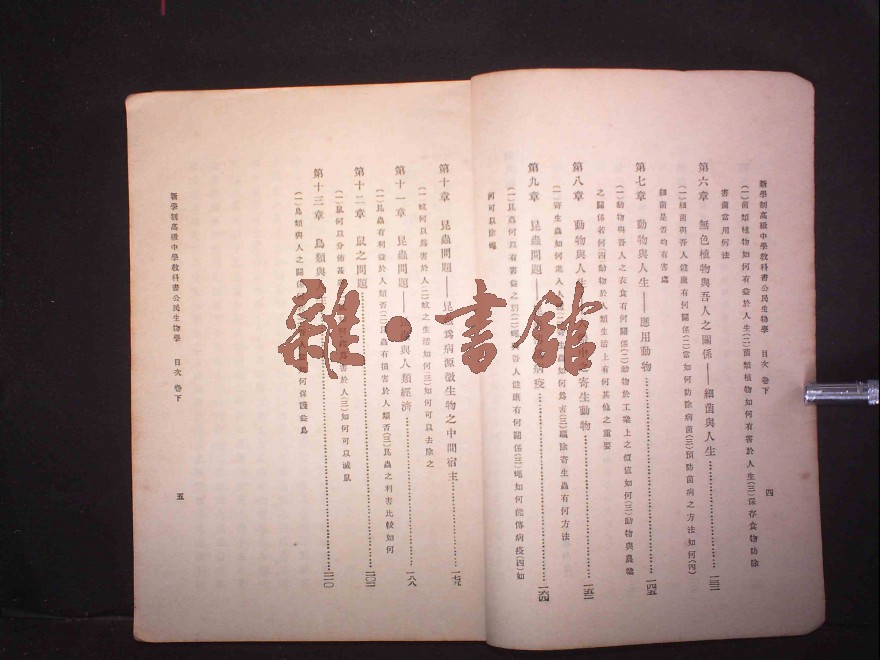 新學制高級中學教科書公民生物學 目次 卷下
四
(一)菌類植物如何有益於人生(二)菌類植物如何有害於人生(三)保存食物防除
害菌當用何法
第六章 無色植物與吾人之關係——細菌與人生
(一)細菌與吾人健康有何關係(二)當如何防除病菌(三)預防菌病之方法如何(四)
細菌是否均有害處
第七章 動物與人生——應用動物 一四五
(一)動物與吾人之衣食有何關係(二)動物於工業上之價值如何(三)動物與農業
之關係若何(四)動物於人類生活上有何其他之重要
第八章 動物與人生 寄生動物 一五二
(一)寄生蟲如何 人 如何為害(三)驅除寄生蟲有何方法
第九章 昆蟲問題 病疫 一六四
(一)昆蟲何以有害益之別(二)蠅 吾人健康有何關係(三)蠅如何能傳病疫(四)如
何可以除蠅
第十章 昆蟲問題——昆蟲為病源微生物之中間宿主 一七九
(一)蚊何以為害於人(二)蚊之生活如何(三)如何可以去除之
第十一章 昆蟲問題—— 與人類經濟 一八八
(一)昆蟲有利益於人類否(二)昆蟲有損害於人類否(三)昆蟲之利害比較如何
第十二章 鼠之問題 二〇三
(一)鼠何以分佈甚 為害於人(三)如何可以滅鼠
第十三章 鳥類與 二一〇
(一)鳥類與人之關係 人 何保護益鳥
新學制高級中學教科書公民生物學 目次 卷下
五
雜·書館